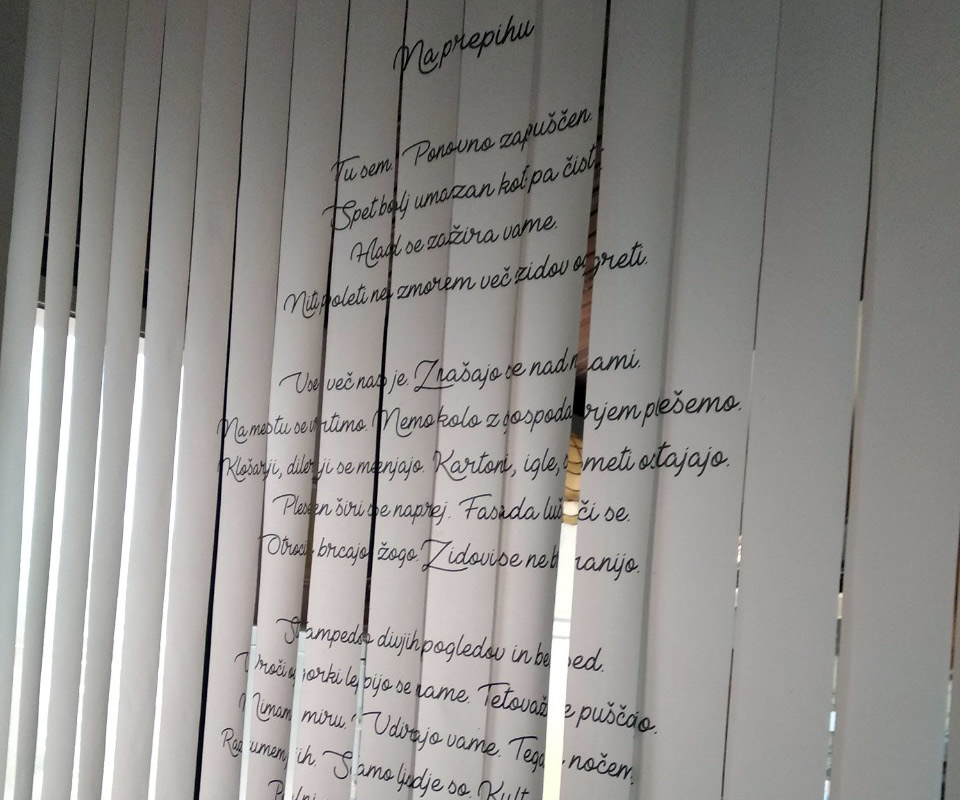 Na prepihu
Tu sem. Ponovno zapuščen.
Spet bolj umazan kot pa čist.
Hlad se zažira vame.
Niti poleti ne zmorem več zidov ogreti.
Vse več nas je. Znašajo se nad nami.
Na mestu se vrtimo. Nemo kolo z gospodarjem plešemo.
Klošarji, dilerji se menjajo. Kartoni, igle, smeti ostajajo.
Plesen širi se naprej. Fasada lušči se.
Otroci brcajo žogo. Zidovi se ne branijo.
Stampedo divjih pogledov in besed.
Vroči ogorki lepijo se name. Tetovaže puščajo.
Nimam miru. Vdirajo vame. Tega nočem.
Razumem jih. Samo ljudje so.